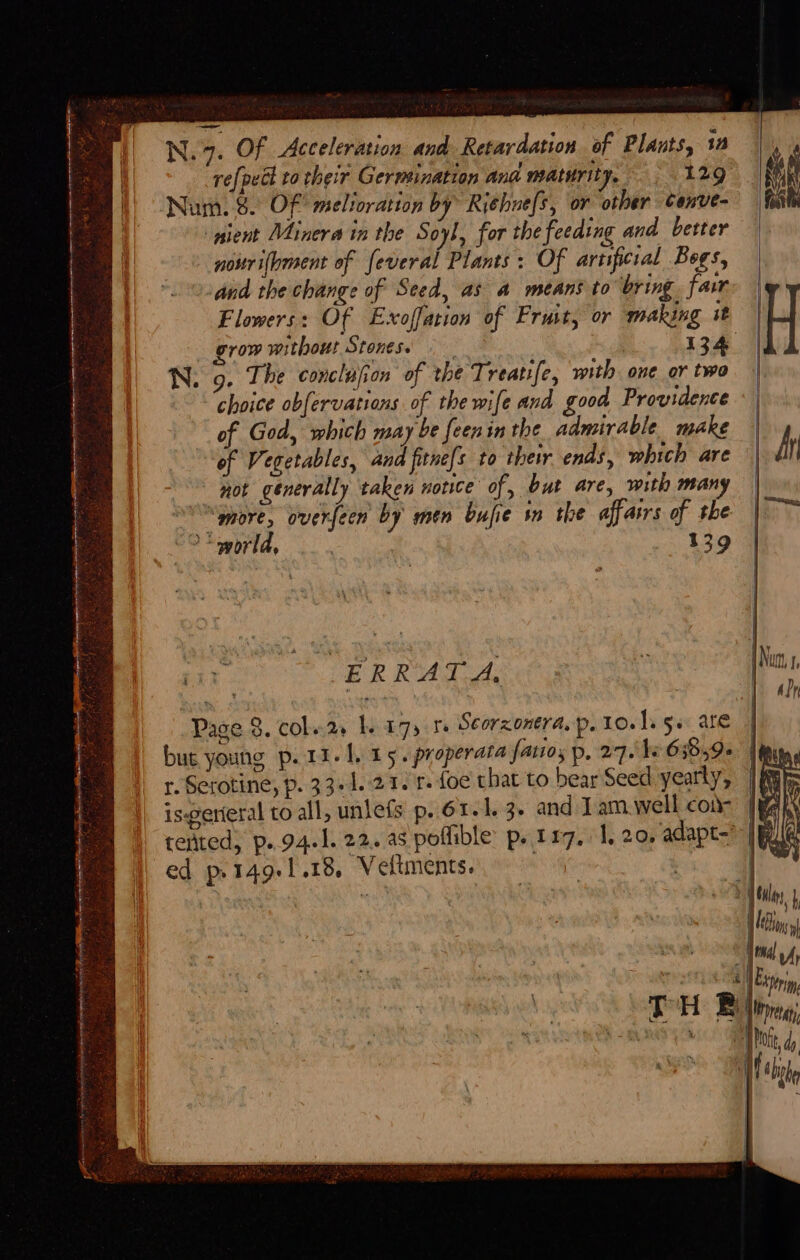 N. 7. Of Acceleration and Retardation of Plants, in
respect to their Germination and maturity. 129
Num. 8. Of melioration by Richneſs, or other conve-
nient Minera in the Soyl, for the feeding and better
nouriſhment of ſeveral Plants : Of artificial Bogs,
and the change of Seed, as a means to bring fair
Flowers : Of Exoſſation of Fruit, or making it
grow without Stones. 134
N. 9. The concluſion of the Treatiſe, with one or two
choice obſervations of the wiſe and good Providence
of God, which may be ſeen in the admirable make
of Vegetables, and fitneſs to their ends, which are
not generally taken notice of, but are, with many
more, overſeen by men buſie in the affairs of the
world, 139
ERRATA.
Page 8. col. 2, l. 17, r. Scorzonera. p. 10. l. 5. are
but young p. 11. l. 15. properata ſatio; p. 27. l. 6,8,9.
r. Serotine, p. 33. l. 21. r. ſoe that to bear Seed yearly,
is general to all, unleſs p. 61. l. 3. and I am well con-
tented, p. 94. l. 22. as poſſible p. 117. l. 20. adapt-
ed p. 149. l. 18. Veſtments.
THE